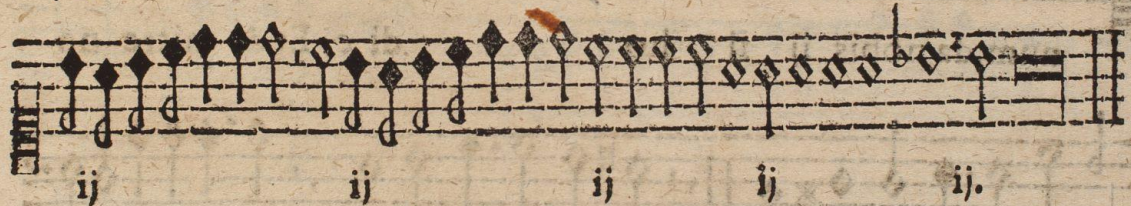 ij ij ij ij ij.